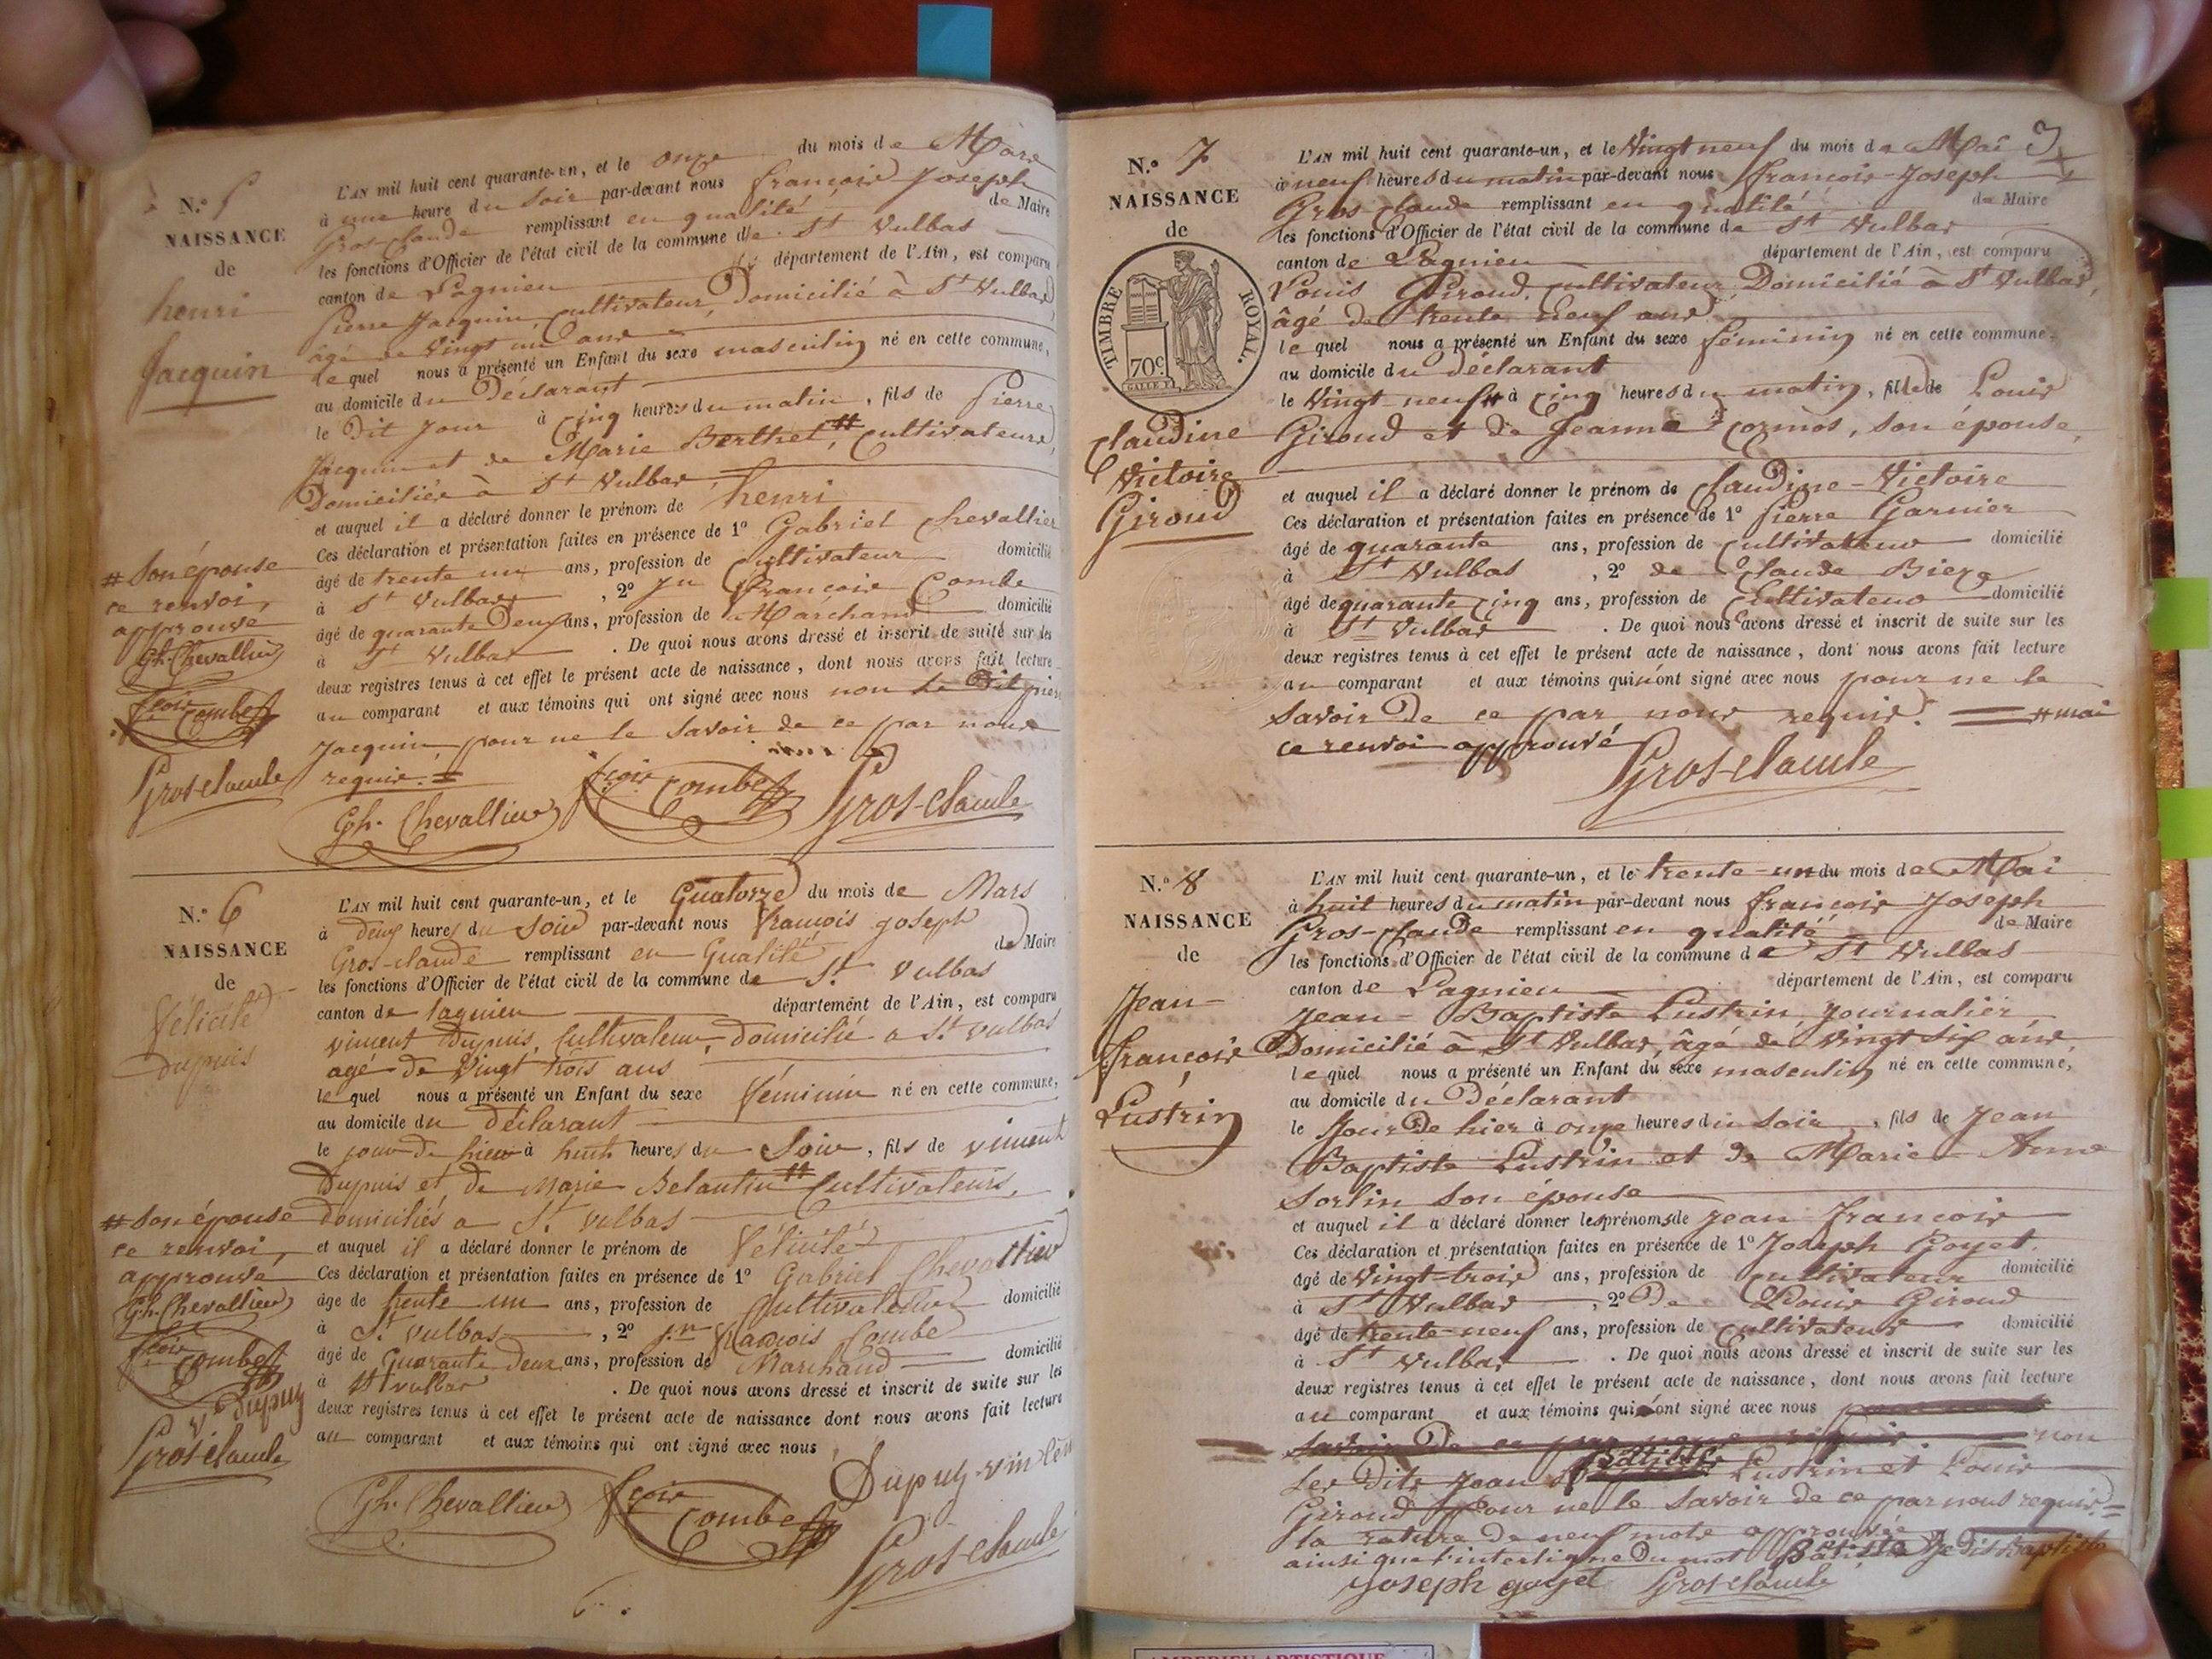 N.º 5
NAISSANCE
de
henri
Jacquin
L'AN mil huit cent quarante-un, et le onze du mois de Mars
à une heure du soir par-devant nous françois Joseph
Gros-Claude remplissant en qualité de Maire
les fonctions d'Officier de l'état civil de la commune de St Vulbas
canton de Lagnieu département de l'Ain, est comparu
Pierre Jacquin, cultivateur, Domicilié à St Vulbas,
âgé de vingt un ans
lequel nous a présenté un Enfant du sexe masculin né en cette commune,
au domicile du Déclarant
le Dit jour à cinq heures du matin, fils de Pierre
Jacquin et de Marie Berthet,# cultivateurs,
Domiciliés à St Vulbas,
et auquel il a déclaré donner le prénom de henri
Ces déclaration et présentation faites en présence de 1º Gabriel Chevallier
âgé de trente un ans, profession de Cultivateur domicilié
à St Vulbas, 2º jn françois Combe
âgé de quarante Deux ans, profession de Marchand domicilié
à St Vulbas. De quoi nous avons dressé et inscrit de suite sur les
deux registres tenus à cet effet le présent acte de naissance, dont nous avons fait lecture
au comparant et aux témoins qui ont signé avec nous non le Dit pierre
Jacquin, pour ne le savoir de ce par nous
requis.=
# Son épouse
ce renvoi,
approuvé
Gh. Chevallier
fçois Combe
Gros-Claude
Gh. Chevallier fçois Combe Gros-Claude
N.º 6
NAISSANCE
de
Félicité
Dupuis
L'AN mil huit cent quarante-un, et le Quatorze du mois de Mars
à Deux heures du Soir par-devant nous François joseph
Gros-claude remplissant en Qualité de Maire
les fonctions d'Officier de l'état civil de la commune de St. Vulbas
canton de lagnieu département de l'Ain, est comparu
vincent Dupuis, Cultivateur, domicilié a St vulbas
agé de Vingt trois ans
lequel nous a présenté un Enfant du sexe féminin né en cette commune,
au domicile du Déclarant
le jour de hier à huit heures du Soir, fils de vincent
Dupuis et de Marie Belantin # Cultivateurs,
domiciliés a St. vulbas
et auquel il a déclaré donner le prénom de Félicité
Ces déclaration et présentation faites en présence de 1º Gabriel Chevallier
âge de trente un ans, profession de Cultivateur domicilié
à St. vulbas, 2º jn François Combe
âgé de Quarante Deux ans, profession de Marchand domicilié
à St vulbas. De quoi nous avons dressé et inscrit de suite sur les
deux registres tenus à cet effet le présent acte de naissance dont nous avons fait lecture
au comparant et aux témoins qui ont signé avec nous
# Son épouse
ce renvoi,
approuvé
Gh. Chevallier
fçois Combe
Vt Dupuy
Gros-Claude
Dupuy vincent
Gh. Chevallier fçois Combe
Gros-Claude
3
N.º 7
NAISSANCE
de
TIMBRE ROYAL.
70c
Claudine
Victoire
Giroud
L'AN mil huit cent quarante-un, et le Vingt neuf du mois de Mai
à neuf heures du matin par-devant nous françois-Joseph
Gros-Claude remplissant en qualité de Maire
les fonctions d'Officier de l'état civil de la commune de St Vulbas
canton de Lagnieu département de l'Ain, est comparu
Louis Giroud, cultivateur, Domicilié à St Vulbas,
âgé de trente neuf ans
lequel nous a présenté un Enfant du sexe féminin né en cette commune,
au domicile du déclarant
le Vingt-neuf # à cinq heures du matin, fille de Louis
Giroud et de Jeanne Cormos, son épouse,
et auquel il a déclaré donner le prénom de Claudine-Victoire
Ces déclaration et présentation faites en présence de 1º Pierre Garnier
âgé de quarante ans, profession de Cultivateur domicilié
à St Vulbas, 2º de Claude
âgé de quarante cinq ans, profession de Cultivateur domicilié
à St Vulbas. De quoi nous avons dressé et inscrit de suite sur les
deux registres tenus à cet effet le présent acte de naissance, dont nous avons fait lecture
au comparant et aux témoins qui n'ont signé avec nous pour ne le
savoir De ce par nous requis. # mai
ce renvoi approuvé
Gros-Claude
N.º 8
NAISSANCE
de
Jean-
françois
Lustrin
L'AN mil huit cent quarante-un, et le trente-un du mois de Mai
à huit heures du matin par-devant nous françois Joseph
Gros-Claude remplissant en qualité de Maire
les fonctions d'Officier de l'état civil de la commune de St Vulbas
canton de Lagnieu département de l'Ain, est comparu
Jean-Baptiste Lustrin, Journalier,
Domicilié à St Vulbas, âgé de vingt six ans,
lequel nous a présenté un Enfant du sexe masculin né en cette commune,
au domicile du Déclarant
le Jour De hier à onze heures du soir, fils de Jean
Baptiste Lustrin et de Marie-Anne
Sorlin son épouse
et auquel il a déclaré donner les prénoms de Jean françois
Ces déclaration et présentation faites en présence de 1º Joseph Goyet,
âgé de Vingt-trois ans, profession de cultivateur domicilié
à St Vulbas, 2º De Louis Giroud
âgé de trente-neuf ans, profession de Cultivateur domicilié
à St Vulbas. De quoi nous avons dressé et inscrit de suite sur les
deux registres tenus à cet effet le présent acte de naissance, dont nous avons fait lecture
au comparant et aux témoins qui ont signé avec nous
savoir De ce par nous requis non
Les Dits Jean Batiste Lustrin et Louis
Giroud pour ne le savoir de ce par nous requis.=
la rature de neuf mots approuvée
ainsi que l'interligne Du mot Batiste je dis Baptiste
Joseph goyet Gros-Claude
AMBERIEU ARTISTIQUE